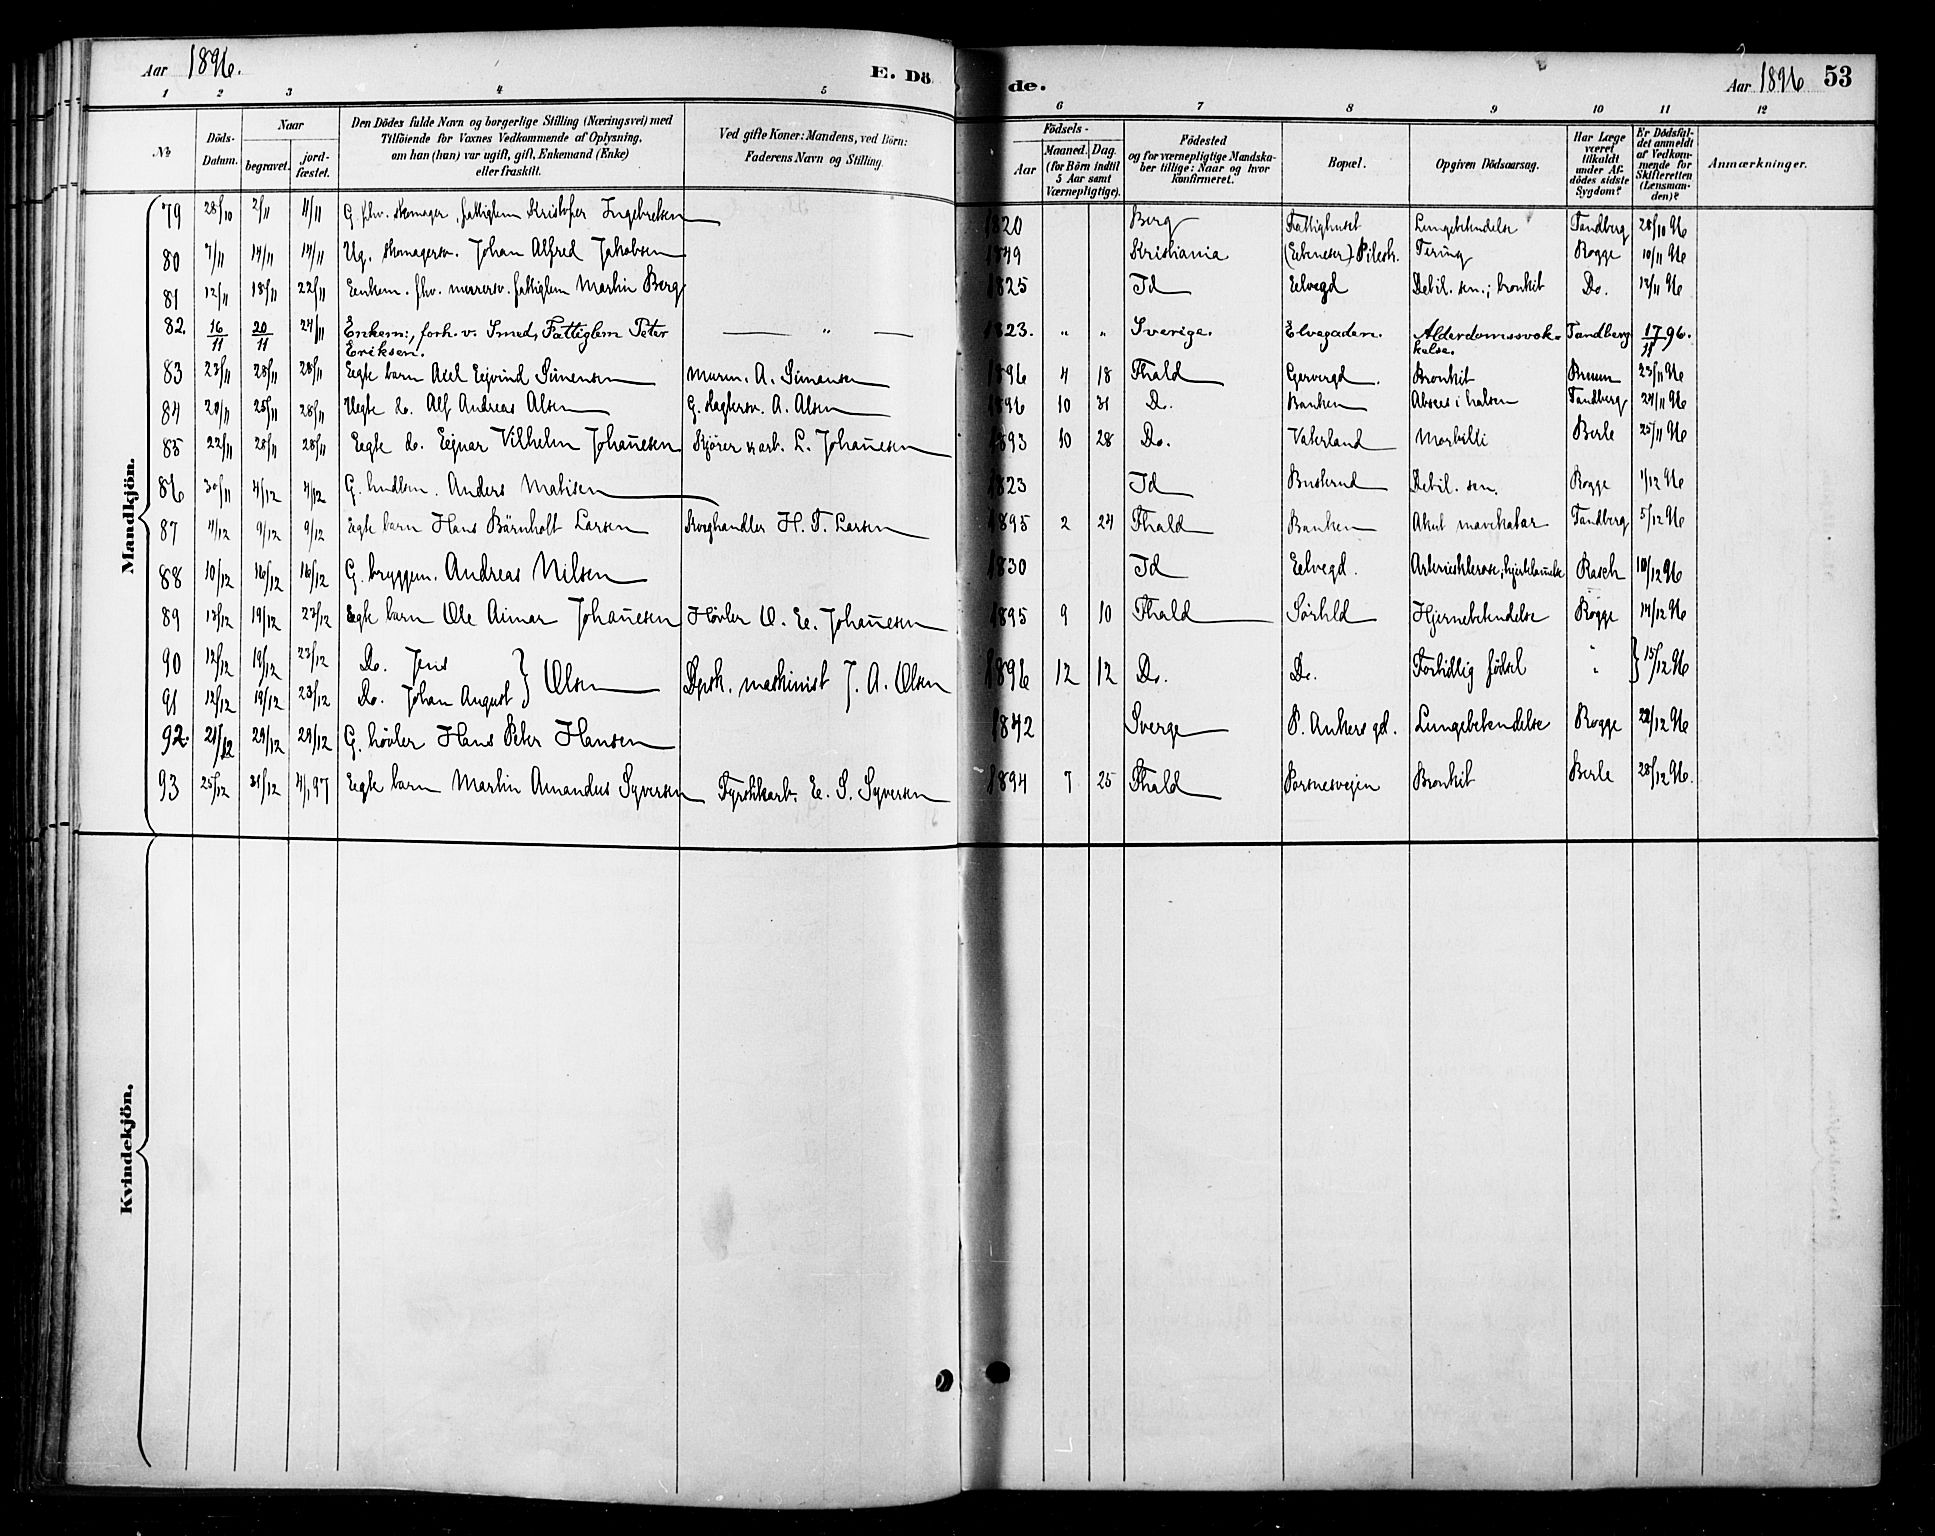 Aar 1896.
E. Dö
de.
Aar 1896 53
1 2 3 4 5 6 7 8 9 10 11 12
No
Döds-Datum.
Naar
begravet.
jord-fæstet.
Den Dödes fulde Navn og borgerlige Stilling (Næringsvei) med
Tilföiende for Voxnes Vedkommende af Oplysning,
om han (hun) var ugift, gift, Enkemand (Enke)
eller fraskilt.
Ved gifte Koner: Mandens, ved Börn:
Faderens Navn og Stilling.
Födsels-
Aar
Maaned. Dag.
(for Börn indtil
5 Aar samt
Værnepligtige).
Födested
og for værnepligtige Mandska-
ber tillige: Naar og hvor
konfirmeret.
Bopæl.
Opgiven Dödsaarsag.
Har Læge
været
tilkaldt
under Af-
dödes sidste
Sygdom?
Er Dödsfal-
det anmeldt
af Vedkom-
mende for
Skifteretten
(Lensman-
den)?
Anmærkninger.
Mandkjön.
79 28/10 2/11 4/11 G. fhv. skomager, fattiglem Kristofer Ingebretsen 1820 Berg Fattighuset Lungebetendelse Tandberg 28/10 96
80 7/11 14/11 14/11 Ug. skomagersv. Johan Alfred Jakobsen 1879 Kristiania (Ebeneser) Pilestr. Tæring Rogge 10/11 96
81 12/11 18/11 22/11 Enkem. fhv. murersv. fattiglem Martin Berg 1825 Id Elvegd Debil. sen.; bronkit Do. 12/11 96
82. 16/11 20/11 24/11 Enkem:, forh. v. Smed, Fattiglem Peter — „ — 1823. „ „ Sverige. Elvegaden. Alderdomssvæk- Tandberg 17/11 96.
Eriksen. kelse.
83 23/11 28/11 28/11 Egte barn Axel Ejvind Simensen Murm. A. Simensen 1896 4 18 Fhald Garverg. Bronkit Bruun 23/11 96
84 20/11 25/11 28/11 Uegte do. Alf Andreas Olsen G. slagtersv. A. Olsen 1896 10 31 Do. Banken Absces i halsen Tandberg 24/11 96
85 22/11 28/11 28/11 Egte do. Ejnar Vilhelm Johanesen Kjører & arb. L. Johanesen 1893 10 28 Do. Vaterland Morbilli Berle 25/11 96
86 30/11 4/12 4/12 G. Anders Matisen 1823 Id Buskerud Debil. sen. Rogge 1/12 96
87 4/12 9/12 9/12 Egte barn Hans Bärnholt Larsen Kveghandler H. T. Larsen 1895 2 24 Fhald Banken Akut mavekatar Tandberg 5/12 96
88 10/12 16/12 16/12 G. bryggem. Andreas Nilsen 1830 Id Elvegd. Arteriesklerose; hjertelamelse Rasch 10/12 96
89 13/12 19/12 23/12 Egte barn Ole Aimar Johanesen Høvler O. E. Johanesen 1895 9 10 Fhald Sørhld Hjernebetendelse Rogge 14/12 96
90 12/12 19/12 23/12 Do. Jens } Olsen Dpsk. maskinist J. A. Olsen 1896 12 12 Do. Do. Fortidlig fødsel „ } 15/12 96
91 12/12 19/12 23/12 Do. Johan August
92. 21/12 29/12 29/12 G. høvler Hans Peter Hansen 1842 Sverge P. Ankers gd. Lungebetendelse Rogge 22/12 96
93 25/12 31/12 4/1 97 Egte barn Martin Amandus Syversen Fyrstikarb. E. S. Syversen 1894 7 25 Fhald Porsnesvejen Bronkit Berle 28/12 96.
Kvindekjön.